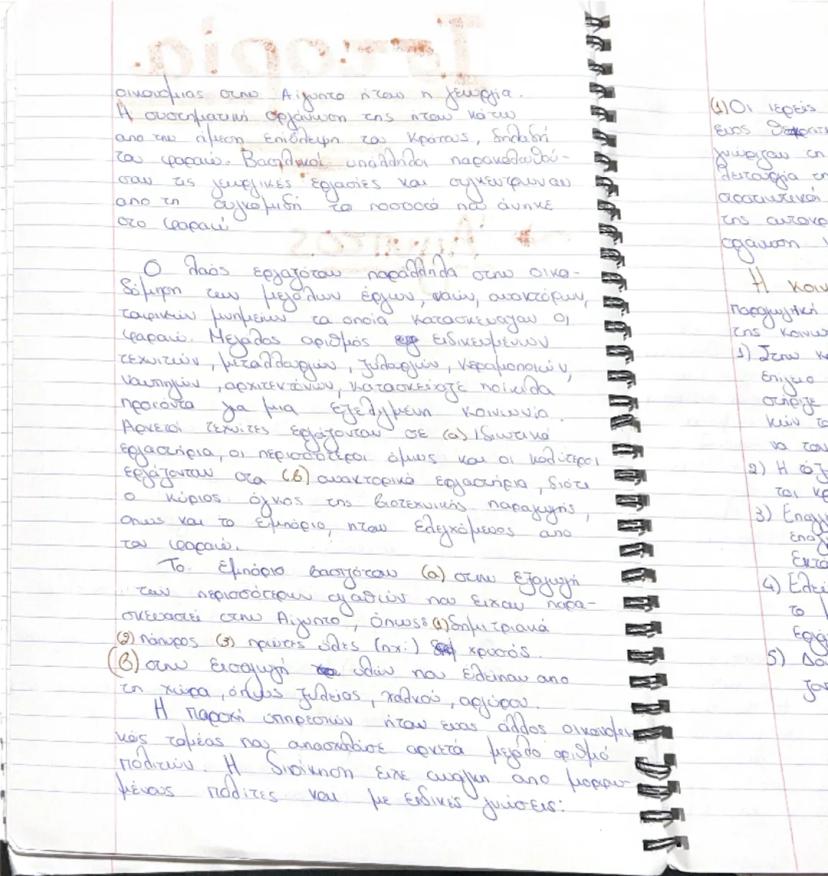 Ιστορία
οικονομίας στην Αίγυπτο ήταν η γεωργία.
Η συστηματική οργάνωση της ήταν κάτω
από την άμεση επίβλεψη του Κράτους, δηλαδή
του φαραώ. Βασιλικοί υπάλληλοι παρακολουθού-
σαν τις γεωργικές εργασίες και συγκέντρωναν
από τη συγκομιδή το ποσοστό που άνηκε
στο φαραώ
→ Αίγυπτος
Ο λαός εργαζόταν παράλληλα στην οικο-
δόμηση των μεγάλων έργων, ναών, ανακτόρων,
ταφικών μνημείων τα οποία κατασκεύαζαν οι
φαραώ. Μεγάλος αριθμός ειδικευμένων
τεχνιτών, μεταλλουργών, ξυλουργών, κεραμοποιών,
ναυπηγών, αρχιτεκτόνων, κατασκεύαζε ποικίλα
προϊόντα για μια εξελιγμένη κοινωνία.
Αρκετοί τεχνίτες εργάζονταν σε (α) ιδιωτικά
εργαστήρια, οι περισσότεροι όμως και οι καλύτεροι
εργάζονταν στα (β) ανακτορικά εργαστήρια, διότι
ο κύριος όγκος της βιοτεχνικής παραγωγής,
όπως και το εμπόριο, ήταν ελεγχόμενος από
τον φαραώ.
Το εμπόριο βασιζόταν (α) στην εξαγωγή
των περισσότερων αγαθών που είχαν παρα-
σκευαστεί στην Αίγυπτο, όπως: (1) δημητριακά
(2) πάπυρος (3) πρώτες ύλες (πχ.) χρυσός.
(β) στην εισαγωγή υλών που έλειπαν από
τη χώρα, όπως ξυλείας, χαλκού, αργύρου.
Η παροχή υπηρεσιών ήταν ένας άλλος οικονομι-
κός τομέας που απασχολούσε αρκετά μεγάλο αριθμό
πολιτών. Η διοίκηση είχε ανάγκη από μορφω-
μένους πολίτες και με ειδικές γνώσεις:
(1) Οι ιερείς
ενός
της
Η κοιν
παραγωγική
της κοινων
1) Στην κ
επίγειο
στήριζε
να το
2) Η
3) Επαγγ
4)
το
5)